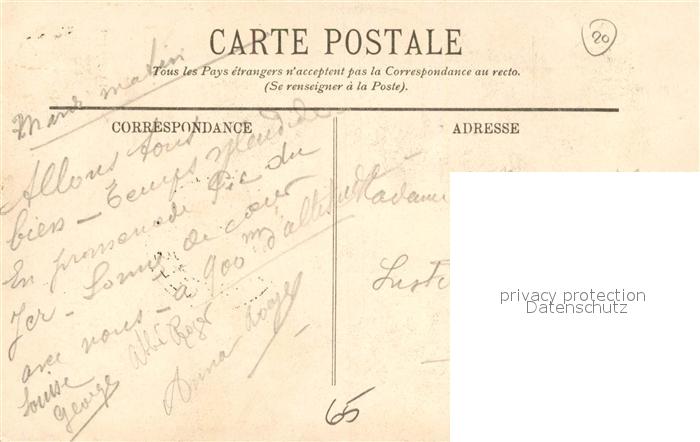 CARTE POSTALE
20
Tous les Pays étrangers n'acceptent pas la Correspondance au recto.
(Se renseigner à la Poste).
CORRESPONDANCE
ADRESSE
matin
Allons tous
bien - Temps splendide
En promenade Pic du
Jer - Somes de cœur
avec nous - à 900 m d'altitude
Louise
George Abbé Roger
Anna
Madame
privacy protection
Datenschutz
65